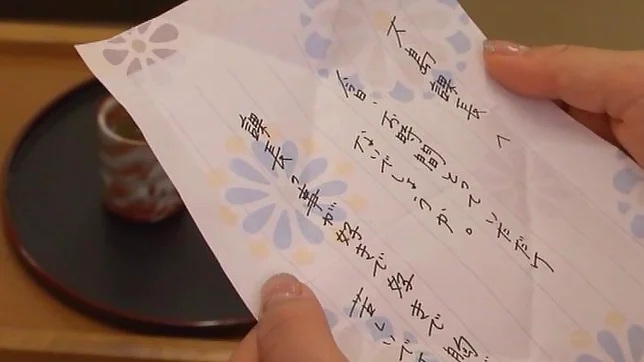 大島課長へ
今日、お時間とっていただけ
ないでしょうか。
課長の事が好きで好きで
苦しいで